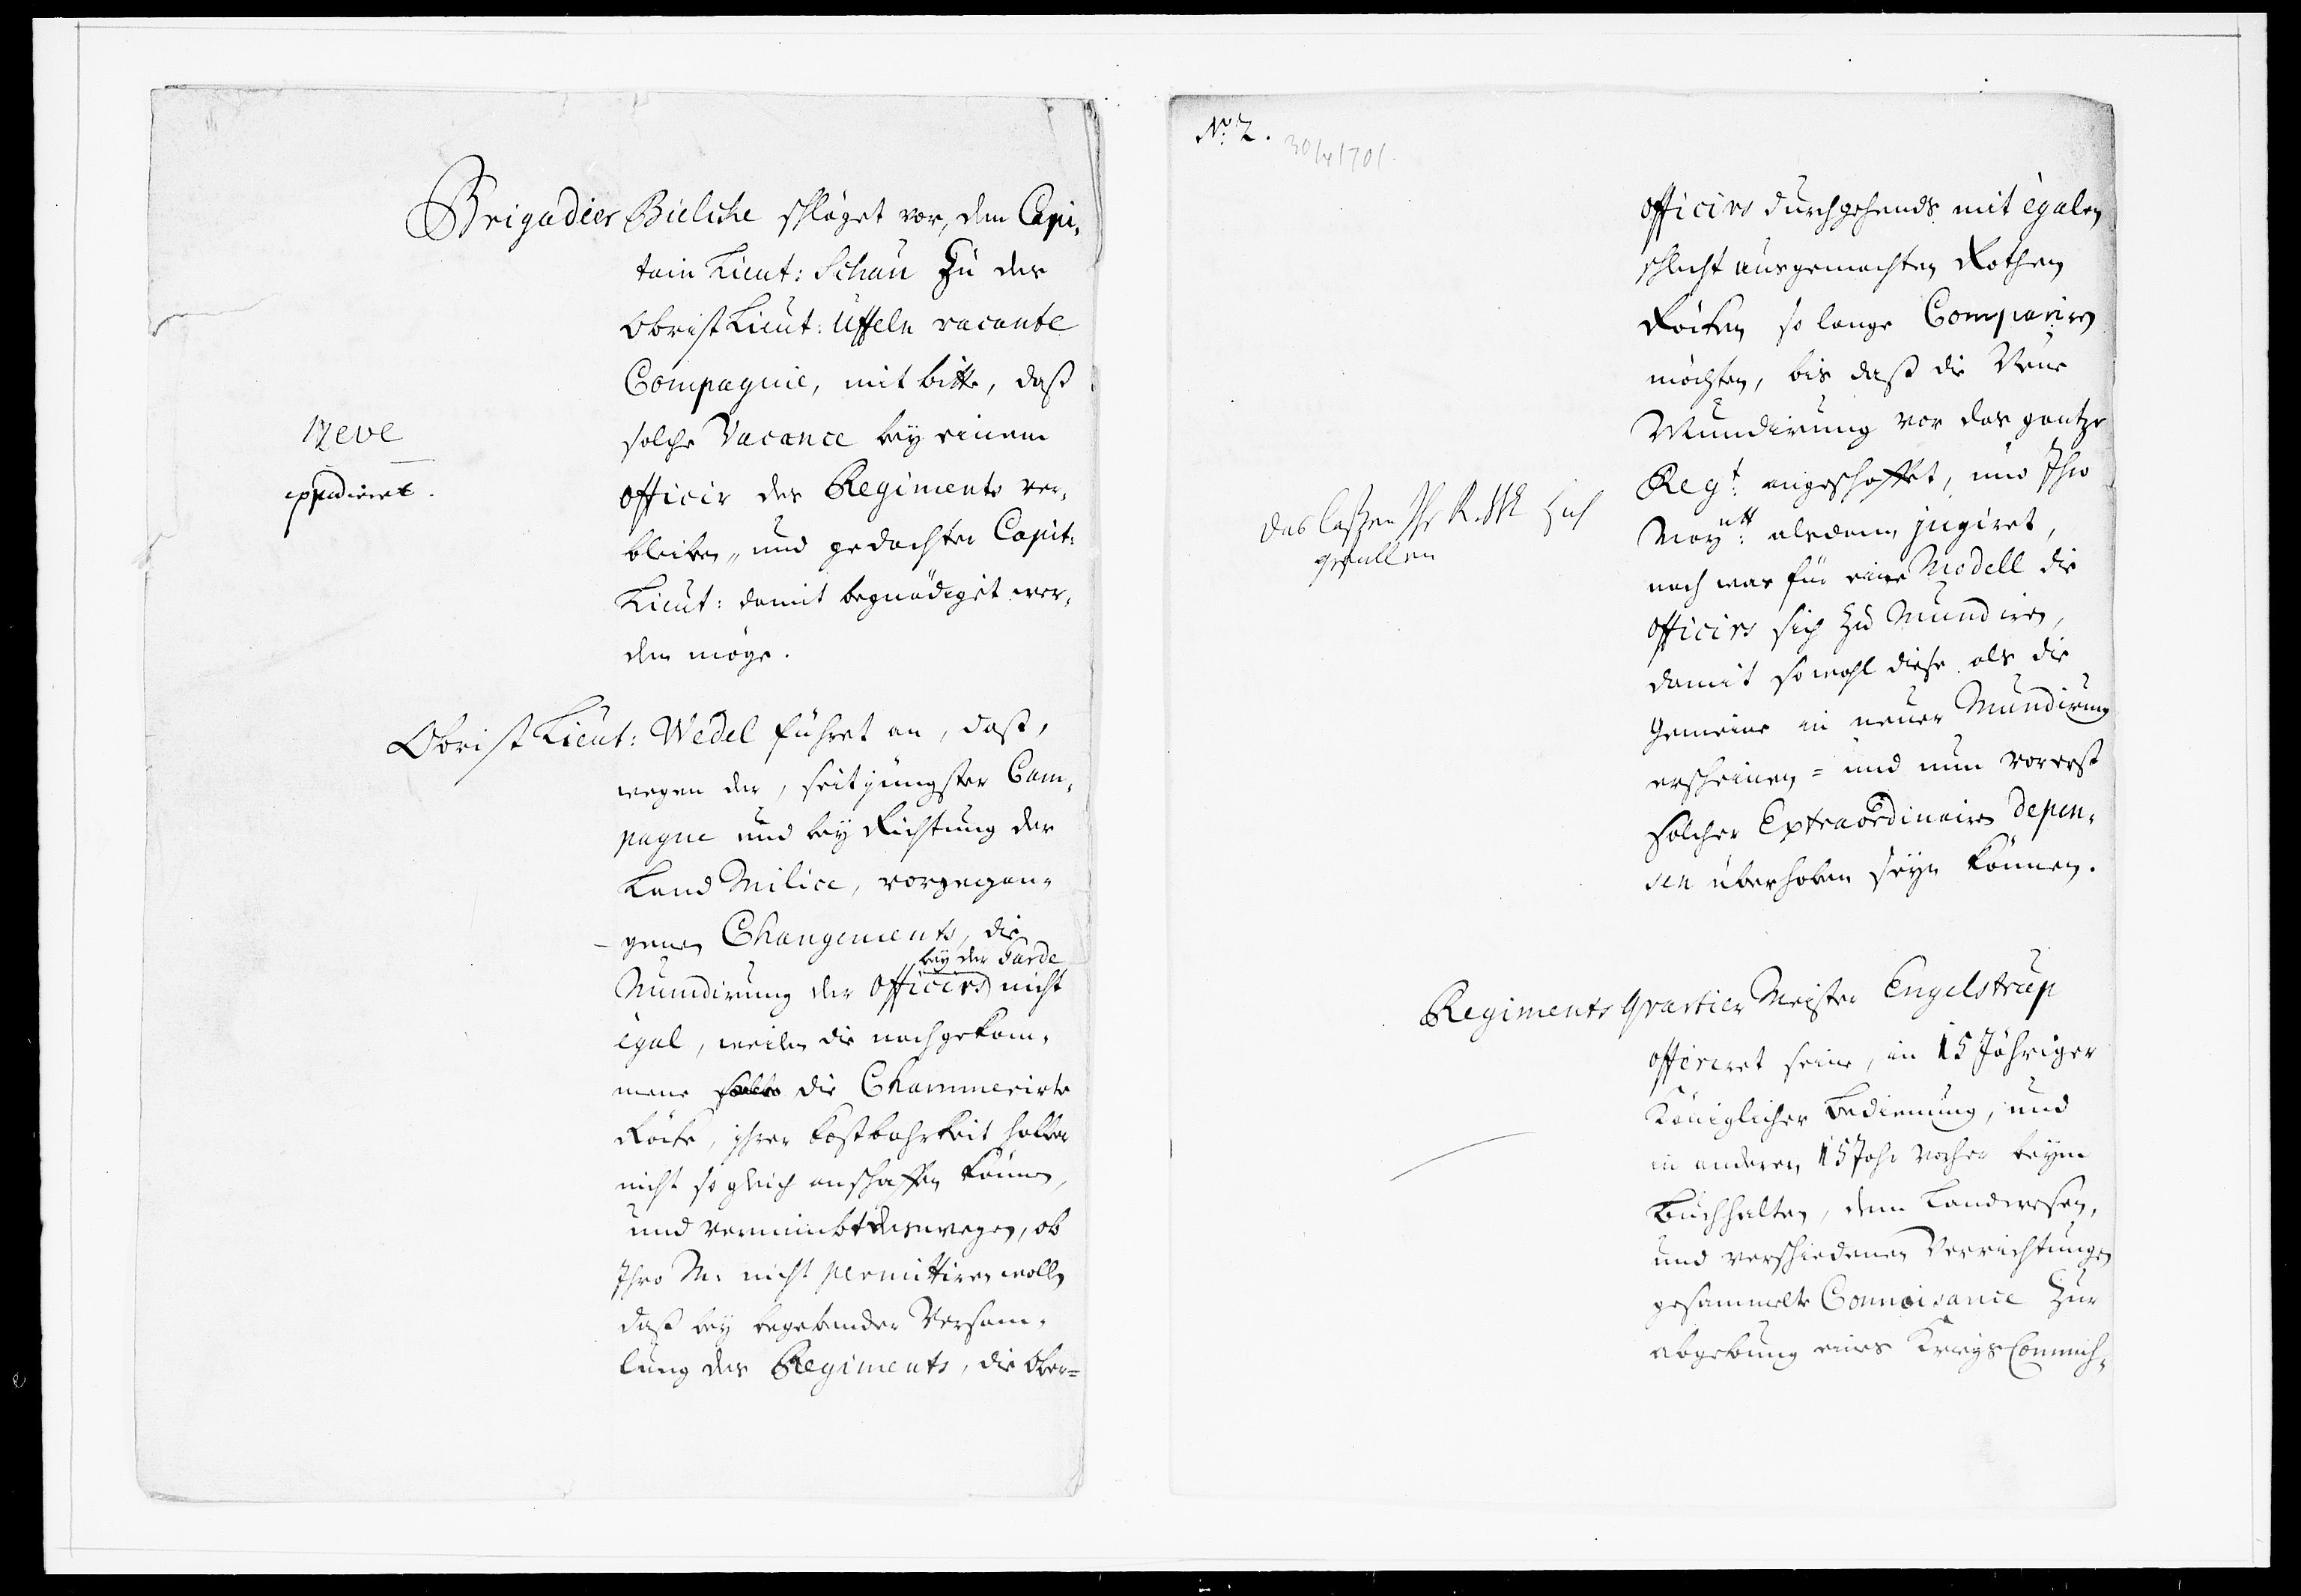 Brigadier Bielche schläget vor, dem Capi,
tain Lieut: Schau zu des
Obrist Lieut: Uffeln vacante
Compagnie, mit bitte, daß
solche Vacance bey einem
Officir des Regiments ver,
bleiben, und gedachter Capit:
Lieut: damit begnädiget wer,
den möge.
Neve
expedieret.
Obrist Lieut: Wedel führet an, daß,
wegen der, seit jüngster Cam,
pagne und bey Richtung der
Land Milice, vorgegan,
genen Changements, die
bey der Garde
Mundirung der Officirs nicht
égal, weilen die nachgekom,
mene die Chammerirte
Röcke, ihrer Kostbahrkeit halber
nicht so gleich anschaffen können,
und vernimbt deswegen, ob
Ihro M: nicht permittiren wolln
daß bey begebender Versam,
lung des Regiments, die Ober=
No. 2.
30/4 1701.
Officirs durchgehends mit égalen
schlecht ausgemachten Rothen
Röcken so lange Compariren
möchten, bis daß die Neue
Mundirung vor das gantze
Regt: angeschaffet, und Ihro
Maytt: alsdann jugiret,
nach was für eine Modell die
Officirs sich zu Mundiren,
damit so wohl diese als die
Gemeine in neuer Mundirung
erscheinen = und nun vorerst
solcher Extraordinairen Depen,
sen überhoben seyn können.
das laßen Ihr K. M sich
gefallen
Regiments Qvartier Meister Engelstrup
offeriret seine, in 15 Jähriger
Königlicher Bedienung, und
in anderen 15 Jahr vorher beym
Buchhalten, dem Landwesen,
und verschiedenen Verrichtungen
gesammelte Connoisance zur
abgebung eines Kriegs Commiß,